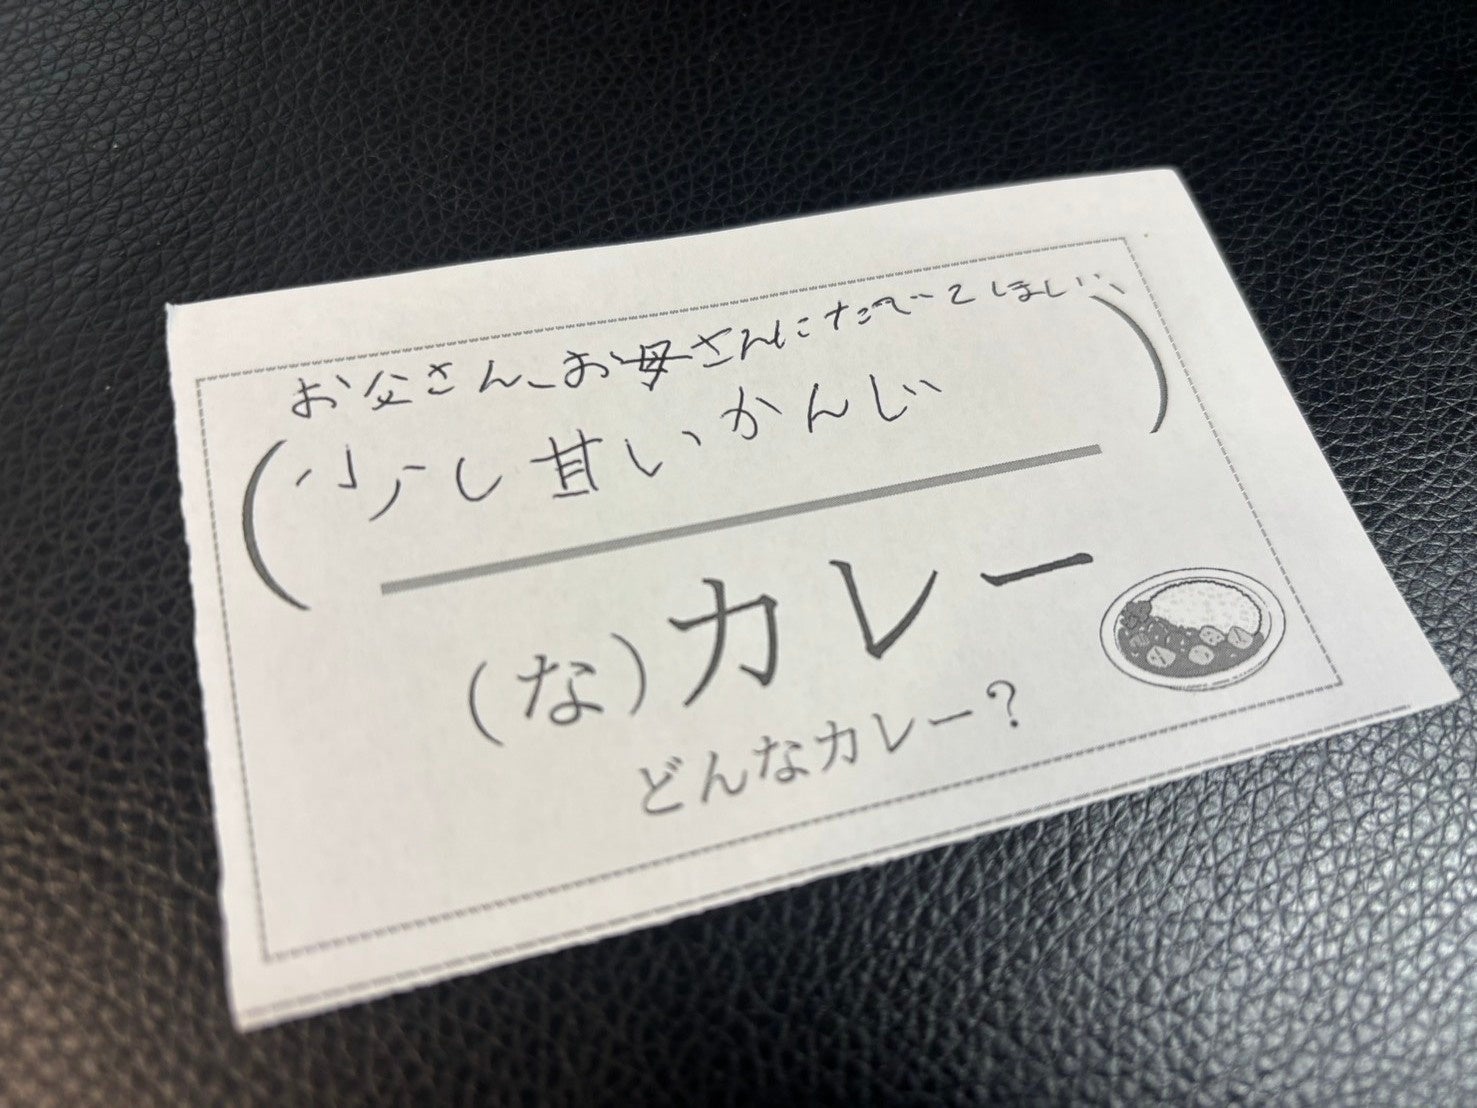 お父さん、お母さんにたべてほしい、
(少し甘いかんじ)
(な)カレー
どんなカレー?